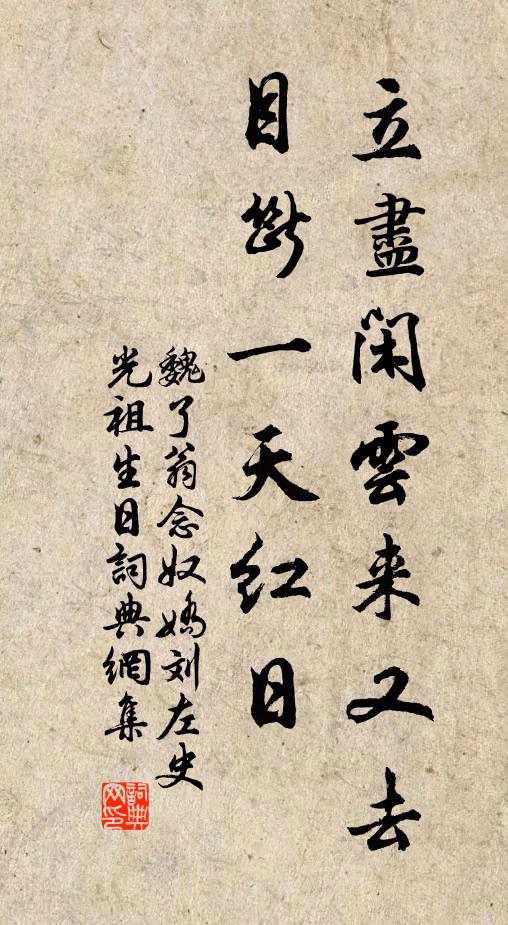 立盡閑雲来又去
目斷一天紅日
魏了翁念奴嬌刘左史
光祖生日詞典網集
詞典网印